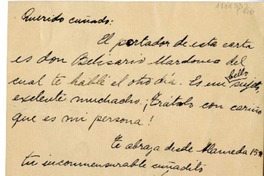 Querido cuñado:
El portador de esta carta
es don Belisario Mardones del
cual te hablé el otro día. Es un bello sujeto,
exelente muchacho. Trátalo con cariño
que es mi persona!
Te abraza desde Alameda
tu inconmensurable cuñadito